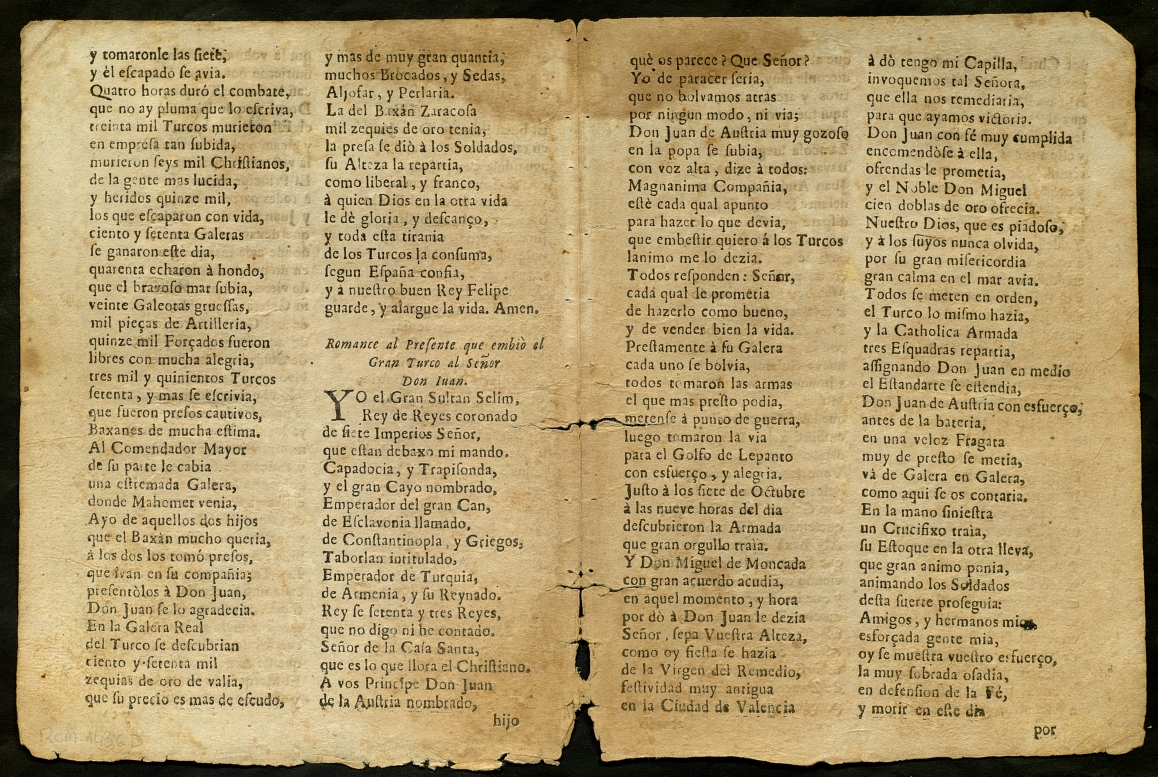 y tomaronle las siete,
y èl escapado se avia.
Quatro horas duró el combate,
que no ay pluma que lo escriva,
treinta mil Turcos murieron
en empresa tan subida,
murieron seys mil Christianos,
de la gente mas lucida,
y heridos quinze mil,
los que escaparon con vida,
ciento y setenta Galeras
se ganaron este dia,
quarenta echaron à hondo,
que el bravoso mar subia,
veinte Galeotas gruessas,
mil pieças de Artilleria,
quinze mil Forçados fueron
libres con mucha alegria,
tres mil y quinientos Turcos
setenta, y mas se escrivia,
que fueron presos cautivos,
Baxanes de mucha estima.
Al Comendador Mayor
de su parte le cabia
una estremada Galera,
donde Mahomet venia,
Ayo de aquellos dos hijos
que el Baxàn mucho queria,
à los dos los tomó presos,
que ivan en su compañia;
presentòlos à Don Juan,
Don Juan se lo agradecia.
En la Galera Real
del Turco se descubrian
ciento y setenta mil
zequias de oro de valia,
que su precio es mas de escudo,
y mas de muy gran quantia,
muchos Brocados, y Sedas,
Aljofar, y Perlaria.
La del Baxàn Zaracosa
mil zequies de oro tenia,
la presa se diò à los Soldados,
su Alteza la repartia,
como liberal, y franco,
à quien Dios en la otra vida
le dè gloria, y descanço,
y toda esta tirania
de los Turcos la consuma,
segun España confia,
y à nuestro buen Rey Felipe
guarde, y alargue la vida. Amen.
Romance al Presente que embiò el
Gran Turco al Señor
Don Iuan.
YO el Gran Sultan Selim,
Rey de Reyes coronado
de siete Imperios Señor,
que estan debaxo mi mando.
Capadocia, y Trapisonda,
y el gran Cayo nombrado,
Emperador del gran Can,
de Esclavonia llamado,
de Constantinopla, y Griegos,
Taborlan intitulado,
Emperador de Turquia,
de Armenia, y su Reynado.
Rey se setenta y tres Reyes,
que no digo ni he contado.
Señor de la Casa Santa,
que es lo que llora el Christiano.
A vos Principe Don Juan
de la Austria nombrado,
hijo
què os parece? Que Señor?
Yo de paracer seria,
que no bolvamos atras
por ningun modo, ni via;
Don Juan de Austria muy gozoso
en la popa se subia,
con voz alta, dize à todos:
Magnanima Compañia,
estè cada qual apunto
para hazer lo que devia,
que embestir quiero á los Turcos
lanimo me lo dezia.
Todos responden: Señor,
cada qual le prometia
de hazerlo como bueno,
y de vender bien la vida.
Prestamente à su Galera
cada uno se bolvia,
todos tomaron las armas
el que mas presto podia,
metense à punto de guerra,
luego tomaron la via
para el Golfo de Lepanto
con esfuerço, y alegria.
Justo à los siete de Octubre
à las nueve horas del dia
descubrieron la Armada
que gran orgullo traìa.
Y Don Miguel de Moncada
con gran acuerdo acudia,
en aquel momento, y hora
por dò à Don Juan le dezia
Señor, sepa Vuestra Alteza,
como oy fiesta se hazia
de la Virgen del Remedio,
festividad muy antigua
en la Ciudad de Valencia
à dò tengo mi Capilla,
invoquemos tal Señora,
que ella nos remediaria,
para que ayamos victoria.
Don Juan con fé muy cumplida
encomendòse à ella,
ofrendas le prometia,
y el Noble Don Miguel
cien doblas de oro ofrecia.
Nuestro Dios, que es piadoso,
y à los suyos nunca olvida,
por su gran misericordia
gran calma en el mar avia.
Todos se meten en orden,
el Turco lo mismo hazia,
y la Catholica Armada
tres Esquadras repartia,
assignando Don Juan en medio
el Estandarte se estendia,
Don Juan de Austria con esfuerço,
antes de la bateria,
en una veloz Fragata
muy de presto se metia,
và de Galera en Galera,
como aqui se os contaria.
En la mano siniestra
un Crucifixo traìa,
su Estoque en la otra lleva,
que gran animo ponia,
animando los Soldados
desta suerte proseguia:
Amigos, y hermanos mios,
esforçada gente mia,
oy se muestra vuestro esfuerço,
la muy sobrada osadia,
en defension de la Fé,
y morir en este dia
por